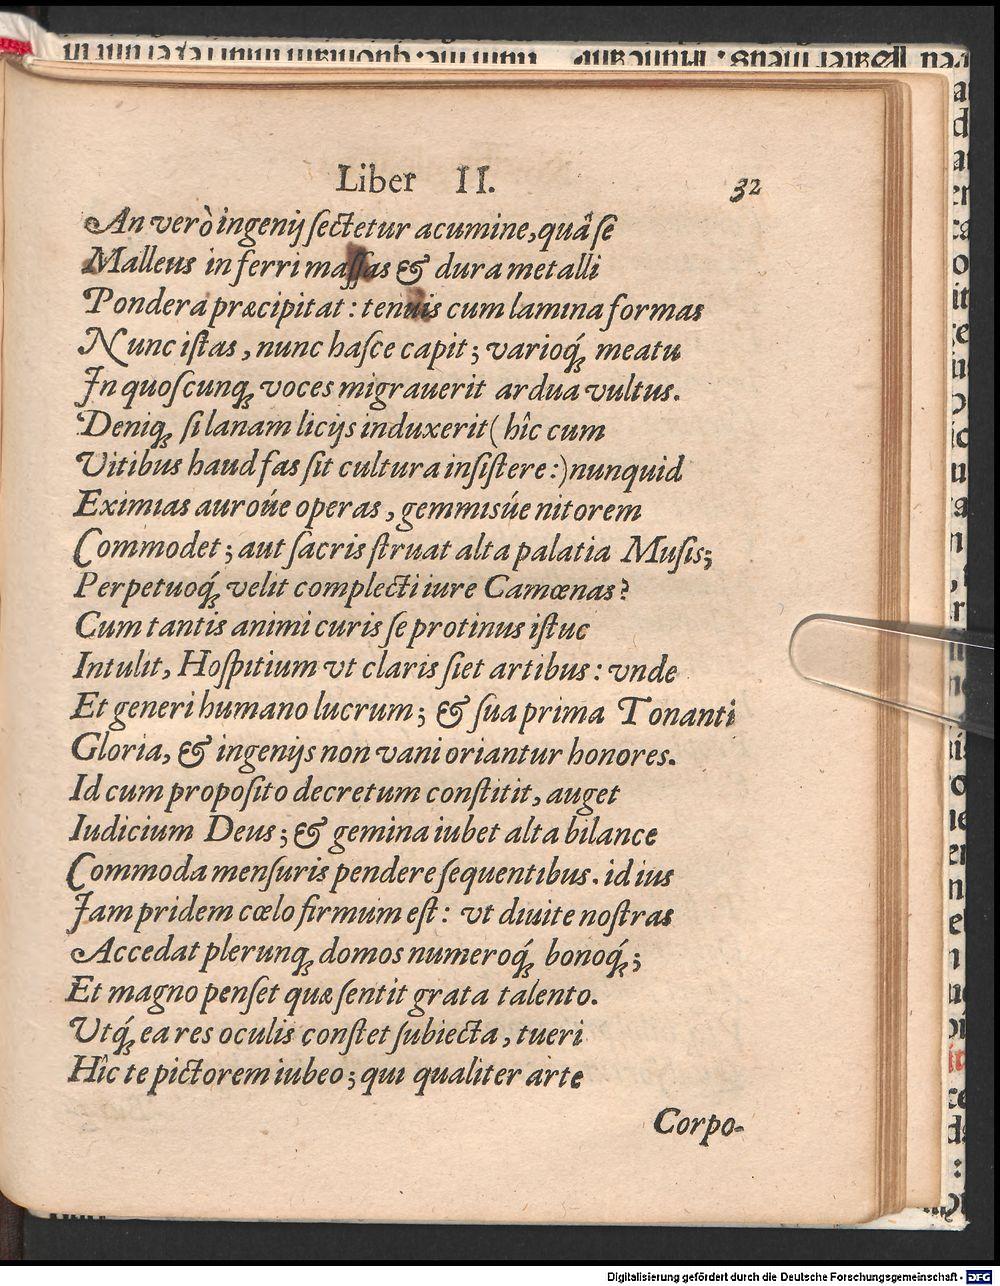 Liber II. 32
An verò ingenij ſectetur acumine, quâ ſe
Malleus in ferri maſſas & dura metalli
Pondera præcipitat: tenuis cum lamina formas
Nunc iſtas, nunc haſce capit; varioq́; meatu
In quoſcunq; voces migrauerit ardua vultus.
Deniq; ſi lanam licijs induxerit (hîc cum
Vitibus haud fas ſit cultura inſiſtere:) nunquid
Eximias auroúe operas, gemmisúe nitorem
Commodet; aut ſacris ſtruat alta palatia Muſis;
Perpetuoq́; velit complecti iure Camœnas?
Cum tantis animi curis ſe protinus iſtuc
Intulit, Hoſpitium vt claris ſiet artibus: vnde
Et generi humano lucrum; & ſua prima Tonanti
Gloria, & ingenijs non vani oriantur honores.
Id cum propoſito decretum conſtitit, auget
Iudicium Deus; & gemina iubet alta bilance
Commoda menſuris pendere ſequentibus. id ius
Jam pridem cœlo firmum eſt: vt diuite noſtras
Accedat plerunq; domos numeroq́; bonoq́;;
Et magno penſet quæ ſentit grata talento.
Utq́; ea res oculis conſtet ſubiecta, tueri
Hîc te pictorem iubeo; qui qualiter arte
Corpo-
Digitalisierung gefördert durch die Deutsche Forschungsgemeinschaft - DFG